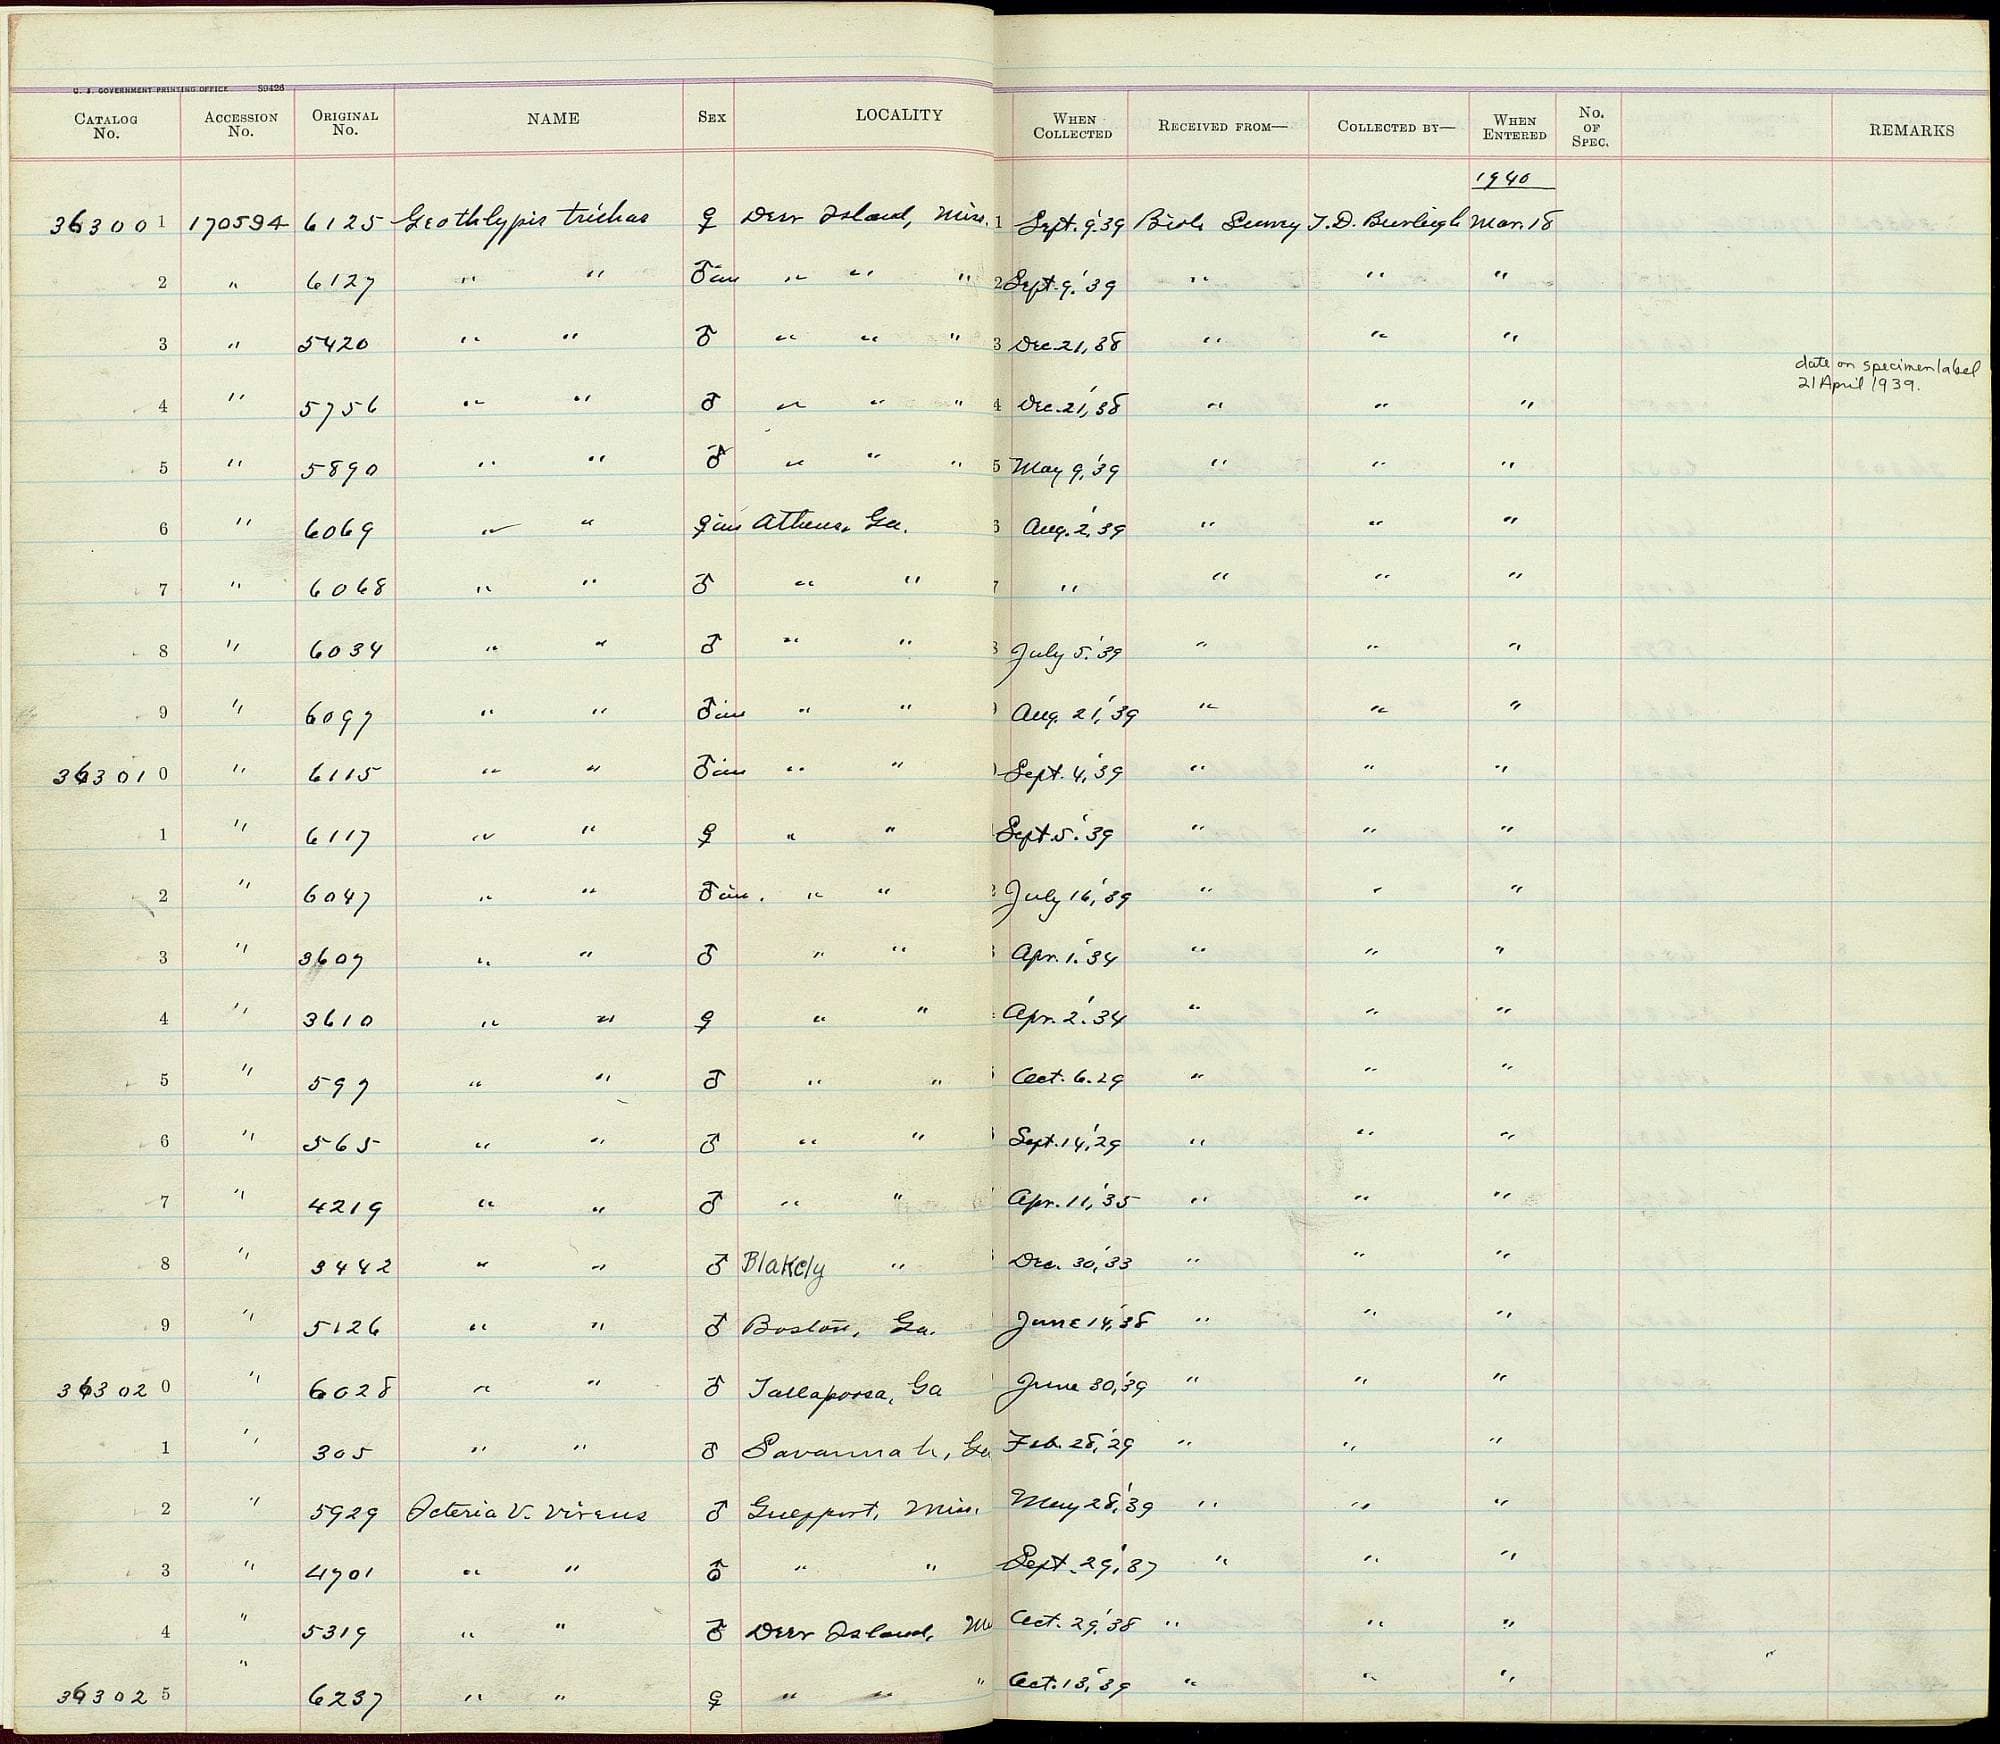 U. S. GOVERNMENT PRINTING OFFICE 89426
CATALOG No. ACCESSION No. ORIGINAL No. NAME SEX LOCALITY WHEN COLLECTED RECEIVED FROM— COLLECTED BY— WHEN ENTERED No. OF SPEC. REMARKS
1940
363001 170594 6125 Geothlypis trichas ♀ Deer Island, Miss. 1 Sept. 9.'39 Biol. Survey T. D. Burleigh Mar. 18
2 " 6127 " " ♂im " " " 2 Sept. 9,'39 " " "
3 " 5420 " " ♂ " " " 3 Dec. 21, 38 " " "
date on specimen label
21 April 1939.
4 " 5756 " " ♂ " " " 4 Dec. 21,'38 " " "
5 " 5890 " " ♂ " " " 5 May 9,'39 " " "
6 " 6069 " " ♀im Athens, Ga. 6 Aug. 2,'39 " " "
7 " 6068 " " ♂ " " 7 " " " "
8 " 6034 " " ♂ " " 8 July 5.'39 " " "
9 " 6097 " " ♂im " " 9 Aug. 21,'39 " " "
363010 " 6115 " " ♂im " " Sept. 4,'39 " " "
1 " 6117 " " ♀ " " Sept. 5.'39 " " "
2 " 6047 " " ♂im. " " 2 July 16,'39 " " "
3 " 3607 " " ♂ " " Apr. 1.'34 " " "
4 " 3610 " " ♀ " " Apr. 2.'34 " " "
5 " 597 " " ♂ " " Oct. 6.29 " " "
6 " 565 " " ♂ " " Sept. 14,'29 " " "
7 " 4219 " " ♂ " " Apr. 11,'35 " " "
8 " 3442 " " ♂ Blakely " Dec. 30,'33 " " "
9 " 5126 " " ♂ Boston, Ga. June 14,'38 " " "
363020 " 6028 " " ♂ Tallapoosa, Ga June 30,'39 " " "
1 " 305 " " ♂ Savannah, Ga Feb. 28,'29 " " "
2 " 5929 Icteria V. virens ♂ Gulfport, Miss. May 28,'39 " " "
3 " 4701 " " ♂ " " Sept. 29,'37 " " "
4 " 5319 " " ♂ Deer Island, Oct. 29,'38 " " "
363025 " 6237 " " ♀ " " " Oct. 13,'39 " " "